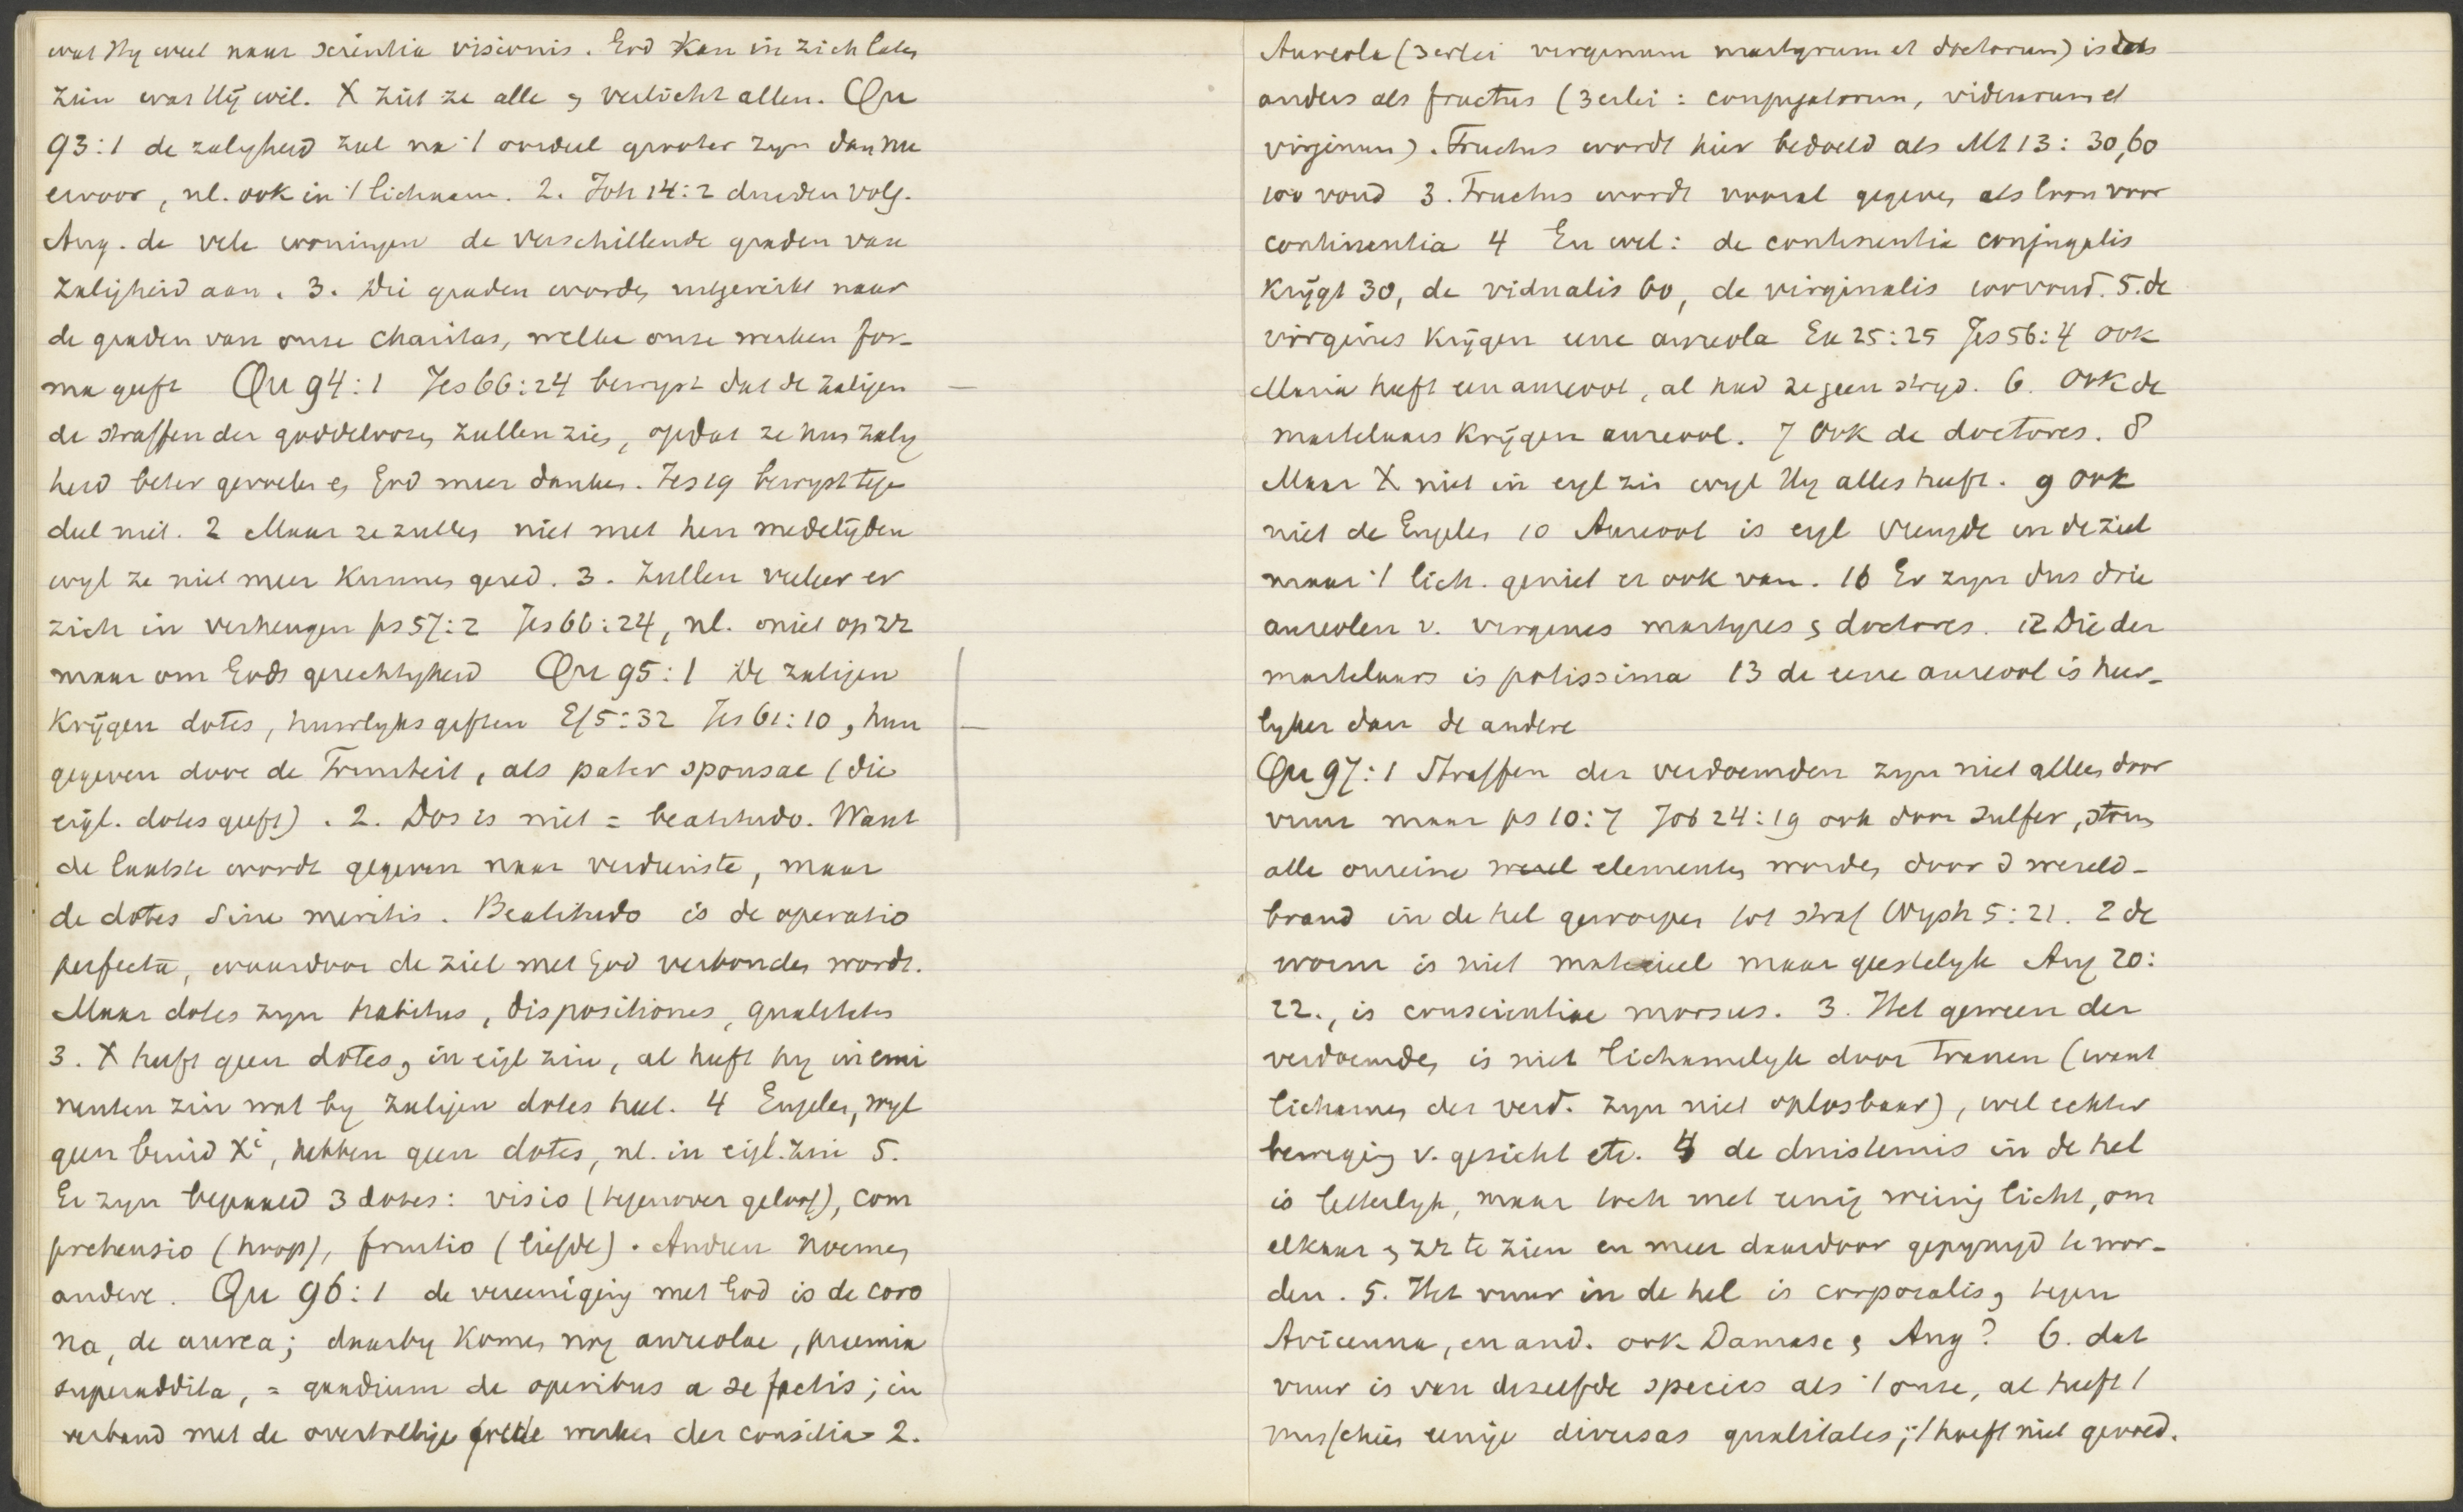 wat Hy weet naar scientia visionis. God kan in zich laten
zien wat Hij wil. X ziet ze alle & verlicht allen. Qu
93:1 de zaligheid zal na 't oordeel grooter zyn dan nu
ervoor, nl. ook in 't lichaam. 2. Joh 14:2 duiden volg.
Aug. de vele woningen de verschillende graden van
zaligheid aan. 3. Die graden worden uitgereikt naar
de graden van onze charitas, welke onze werken for-
ma geeft Qu 94:1 Jes 66:24 bewyst dat de zaligen
de straffen der goddeloozen zullen zien, opdat ze hun zalig
heid beter gevoelen en God meer danken. Jes 19 bewyst tegen
deel niet. 2 Maar ze zullen niet met hen medelijden
wyl ze niet meer kunnen gered. 3. Zullen veeleer er
zich in verheugen ps 57:2 Jes 66:24, nl. niet op zz
maar om Gods gerechtigheid Qu 95:1 De zaligen
krijgen dotes, huwlyksgiften Ef 5:32 Jes 61:10, hun
gegeven door de Triniteit, als pater sponsae (die
eigl. dotes geeft). 2. Dos is niet = beatitudo. Want
de laatste wordt gegeven naar verdienste, maar
de dotes sine meritis. Beatitudo is de operatio
perfecta, waardoor de ziel met God verbonden wordt.
Maar dotes zyn habitus, dispositiones, qualitates
3. X heeft geen dotes, in eigl zin, al heeft hy in emi
nenten zin wat by zaligen dotes heet. 4 Engelen, wyl
geen bruid Xi, hebben geen dotes, nl. in eigl. zin 5.
Er zyn bepaald 3 dotes: visio (tegenover geloof), com
prehensio (hoop), fruitio (liefde). Andren noemen
andere. Qu 96:1 de vereeniging met God is de coro
na, de aurea; daarby komen nog aureolae, praemia
superaddita, = gaudium de operibus a se factis; in
verband met de overtollige goede werken der consilia 2.
Aureola (3erlei virginum martyrum et doctorum) is iets
anders als fructus (3erlei: conjugatorum, viduarum et
virginum). Fructus wordt hier bedoeld als Mt 13: 30, 60
100 voud 3. Fructus wordt vooral gegeven als loon voor
continentia 4 En wel: de continentia conjugalis
krijgt 30, de vidualis 60, de virginalis 100voud. 5. de
virgines krijgen eene aureola Ex 25:25 Jes 56:4 ook
Maria heeft een aureool, al had ze geen stryd. 6. Ook de
martelaars krijgen aureool. 7 Ook de doctores. 8
Maar X niet in eigl zin wyl Hy alles heeft. 9 ook
niet de Engelen 10 Aureool is eigl vreugde in de ziel
maar 't lich. geniet er ook van. 16 Er zyn dus drie
aureolen v. virgines martyres & doctores. 12 Die der
martelaars is potissima 13 de eene aureool is heer-
lyker dan de andere
Qu 97:1 Straffen der verdoemden zyn niet alleen door
vuur maar ps 10:7 Job 24:19 ook door sulfer, storm
alle onreine elementen worden door d wereld-
brand in de hel geworpen tot straf Wysh 5:21. 2 de
worm is niet materieel maar geestelyk Aug 20:
22., is conscientiae morsus. 3. Het geween der
verdoemden is niet lichamelyk door tranen (want
lichamen der verd. zyn niet oplosbaar), wel echter
beweging v. gezicht etc. 4 de duisternis in de hel
is letterlyk, maar toch met eenig weinig licht, om
elkaar & zz te zien en meer daardoor gepynigd te wor-
den. 5. Het vuur in de hel is corporalis, tegen
Avicenna, en and. ook Damasc & Aug? 6. dat
vuur is van dezelfde species als 't onze, al heeft 't
misschien eenige diversas qualitates; 't hoeft niet gevoed.